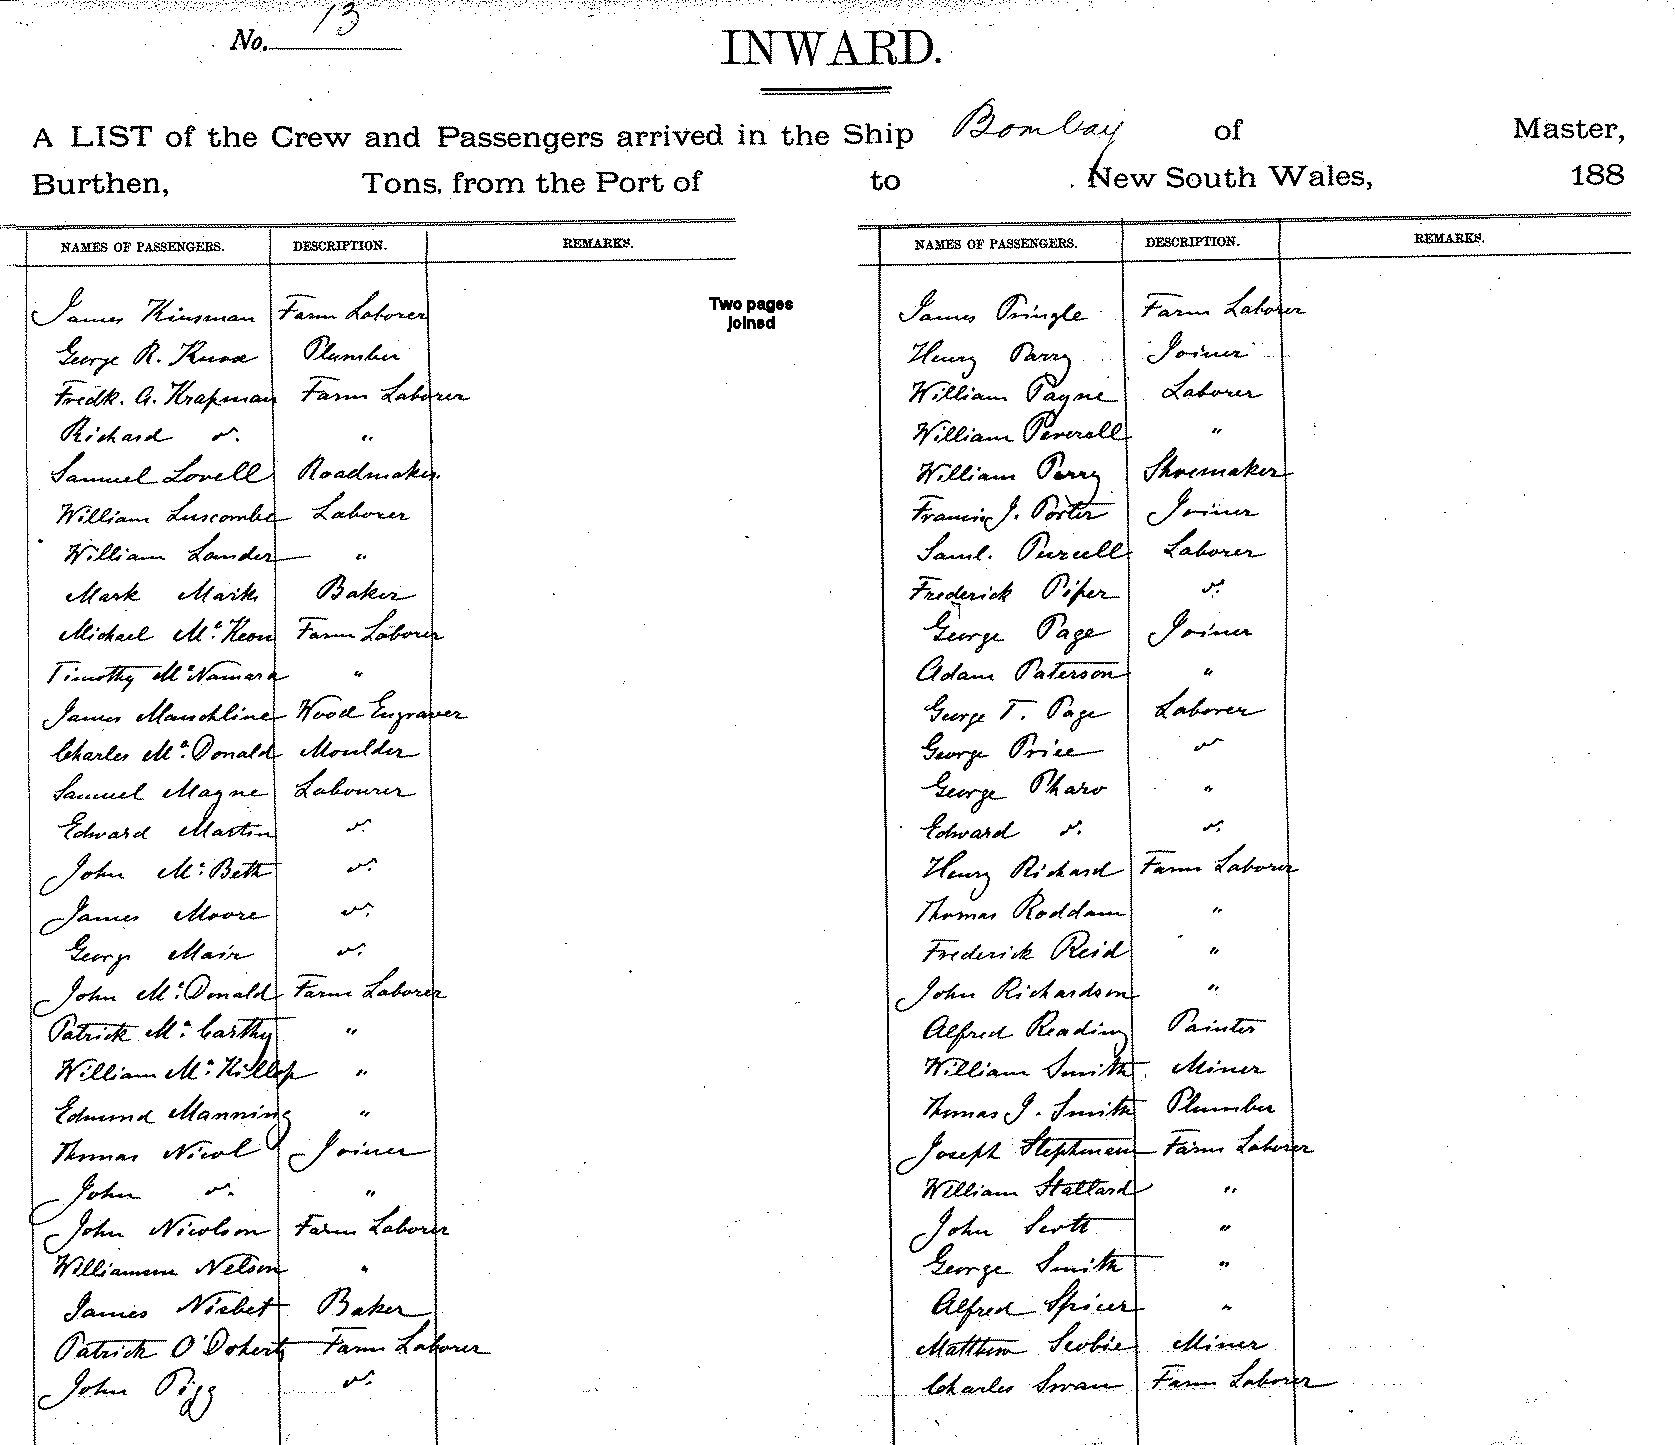 No. 13
INWARD.
A LIST of the Crew and Passengers arrived in the Ship Bombay of Master,
Burthen, Tons, from the Port of to New South Wales, 188
NAMES OF PASSENGERS. DESCRIPTION. REMARKS.
James Kinsman Farm Laborer
George R. Plumber
Fredk. A. Krapman Farm Laborer
Richard do. "
Samuel Lovell Roadmaker
William Luscombe Laborer
William Lander "
Mark Marks Baker
Michael McKeon Farm Laborer
Timothy McNamara "
James Mauchline Wood Engraver
Charles McDonald Moulder
Samuel Magne Labourer
Edward Martin do.
John McBeth do.
James Moore do.
George Mair do.
John McDonald Farm Laborer
Patrick McCarthy "
William McKillop "
Edmund Manning "
Thomas Nicol Joiner
John do. "
John Nicolson Farm Laborer
Nelson "
James Nisbet Baker
Patrick O'Doherty Farm Laborer
John Pigg do.
Two pages
joined
NAMES OF PASSENGERS. DESCRIPTION. REMARKS.
James Pringle Farm Laborer
Henry Parry Joiner
William Payne Laborer
William Peverall "
William Perry Shoemaker
Francis J. Porter Joiner
Saml. Purcell Laborer
Frederick Piper do.
George Page Joiner
Adam Paterson "
George T. Page Laborer
George Price do
George Pharo "
Edward do. do.
Henry Richard Farm Laborer
Thomas Roddam "
Frederick Reid "
John Richardson "
Alfred Reading Painter
William Smith Miner
Thomas J. Smith Plumber
Joseph Stephenson Farm Laborer
William Stallard "
John Scott "
George Smith "
Alfred Spicer "
Matthew Scobie Miner
Charles Swan Farm Laborer